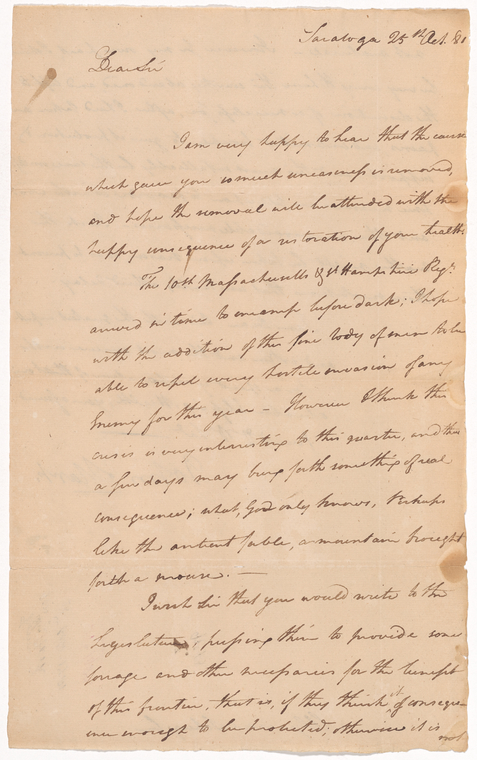 Saratoga 25th Oct. 81
Dear Sir
I am very happy to hear that the cause
which gave you so much uneasiness is removed,
and hope the removal will be attended with the
happy consequence of a restoration of your health.
The 10th Massachusetts & Hampshire Regts.
arrived in time to encamp before dark; I hope
with the addition of this fine body of men to be
able to repel every hostile invasion of any
Enemy for this year – However I think this
crisis is very interesting to this quarter, and that
a few days may bring forth something of real
consequence; what, God only knows, Perhaps
like the antient fable, a mountain brought
forth a mouse. —
I wish Sir that you would write to the
Legislature, pressing them to provide some
forage and other necessaries for the benefit
of this frontier, that is, if they think it of conseque-
nce enough to be protected; otherwise it is
not